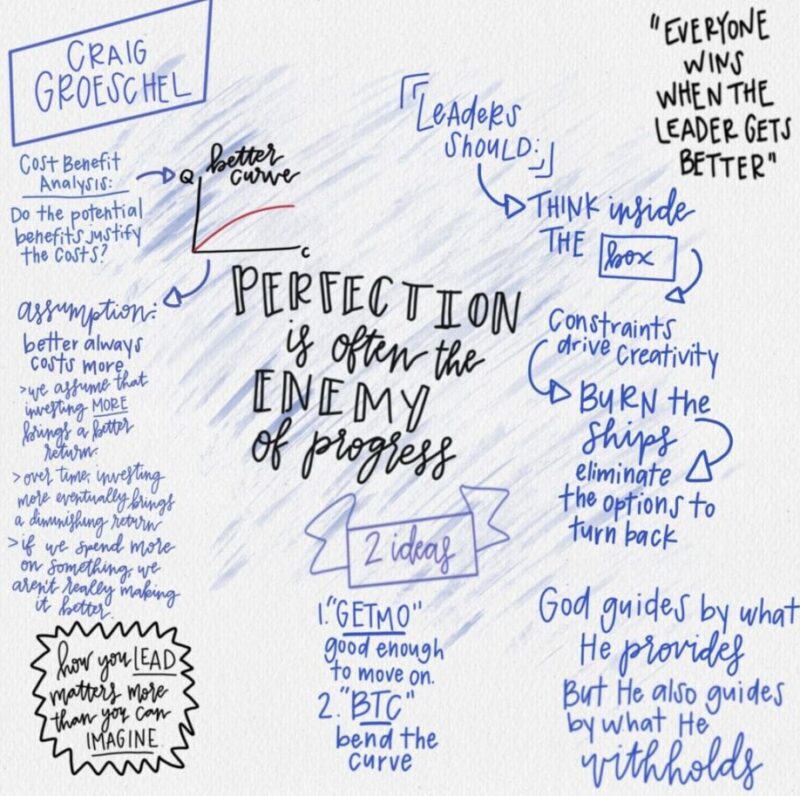 CRAIG
GROESCHEL
Cost Benefit
Analysis:
Do the potential
benefits justify
the costs?
Q
better
curve
C
assumption:
better always
costs more
>we assume that
investing MORE
brings a better
return.
>over time, investing
more eventually brings
a diminishing return
>if we spend more
on something, we
aren't really making
it better.
how you LEAD
matters more
than you can
IMAGINE
PERFECTION
is often the
ENEMY
of progress
2 ideas
1. "GETMO"
good enough
to move on.
2. "BTC"
bend the
curve
Leaders
Should:
THINK inside
THE box
Constraints
drive creativity
BURN the
Ships
eliminate
the options to
turn back
"EVERYONE
WINS
WHEN THE
LEADER GETS
BETTER"
God guides by what
He provides
But He also guides
by what He
withholds